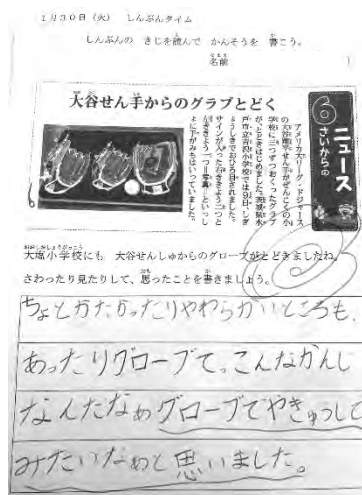 1月30日（火）　しんぶんタイム
しんぶんの　きじを読んで　かんそうを　書こう。
名前（　　　）
6
さいからの
ニュース
大谷せん手からのグラブとどく
アメリカ大リーグ・ドジャース
の大谷翔平せん手がぜんこくの小
学校に三つずつおくったグラブ
が、とどきはじめました。茨城県水
戸市立吉沢小学校では9日、しぎ
ょうしきでおひろ目されました。
サインが入った右ききよう二つと
左ききよう一つ＝写真＝といっし
ょに手がみもはいっていました。
大塩小学校にも　大谷せんしゅからのグローブがとどきましたね。
さわったり見たりして、思ったことを書きましょう。
ちょとかたかったりやわらかいところも、
あったりグローブてっこんなかんし
なんだなぁグローブでやきゅうして
みたいなぁと思いました。